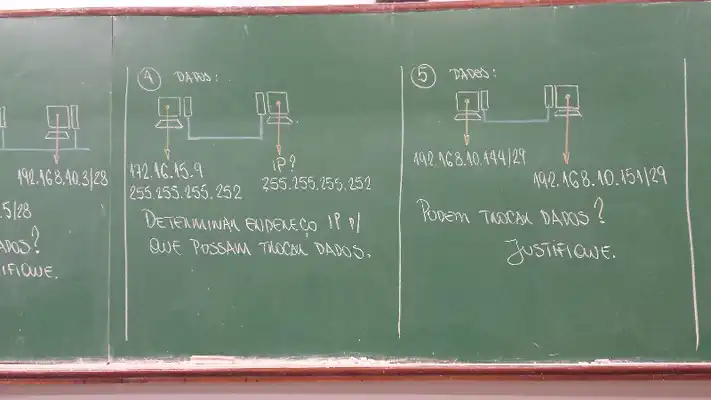 192.168.10.3/28
.5/28
DADOS?
TIFIQUE.
4 DADOS:
172.16.15.9
255.255.255.252
IP?
255.255.255.252
DETERMINAR ENDEREÇO IP P/
QUE POSSAM TROCAR DADOS.
5 DADOS:
192.168.10.144/29
192.168.10.151/29
PODEM TROCAR DADOS?
JUSTIFIQUE.